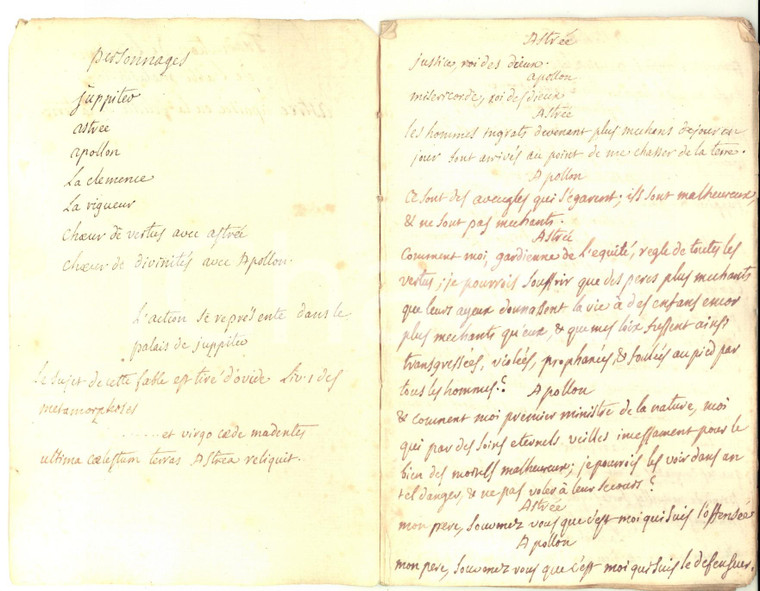 personnages
juppiter
astrée
apollon
La clemence
La vigueur
Chœur de vertus avec astrée
chœur de divinités avec Apollon.
L'action se represente dans le
palais de juppiter
Le sujet de cette fable est tiré d'ovide Liv. 1 des
metamorphoses
......et virgo cæde madentes
ultima cælestum terras Astrea reliquit.
Astrée
justice, roi des dieux.
apollon
misericorde, roi des dieux
Astrée
les hommes ingrats devenant plus mechans de jour en
jour sont arrivés au point de me chasser de la terre.
Apollon
Ce sont des aveugles qui s'égarent; ils sont malheureux,
& ne sont pas mechants.
Astrée
Comment moi, gardienne de l'equité, regle de toutes les
vertus, je pourrois souffrir que des peres plus mechants
que leurs ayeux donnassent la vie à des enfans encor
plus mechants qu'eux, & que mes loix fussent ainsi
transgressées, violées, prophanées, & foulées au pied par
tous les hommes?
Apollon
& comment moi premier ministre de la nature, moi
qui par des soins eternels veilles incessament pour le
bien des mortels malheureux; je pourrois les voir dans un
tel danger, & ne pas voler à leur secours?
Astrée
mon pere, souvenez vous que c'est moi qui suis l'offensée
Apollon
mon pere, souvenez vous que c'est moi qui suis le defenseur.